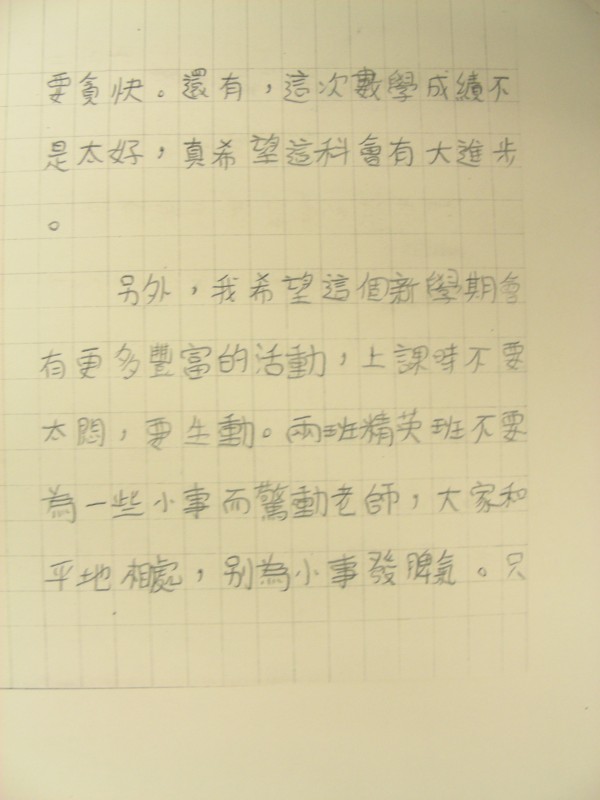 要貪快。還有，這次數學成績不
是太好，真希望這科會有大進步
。
另外，我希望這個新學期會
有更多豐富的活動，上課時不要
太悶，要生動。兩班精英班不要
為一些小事而驚動老師，大家和
平地相處，別為小事發脾氣。只